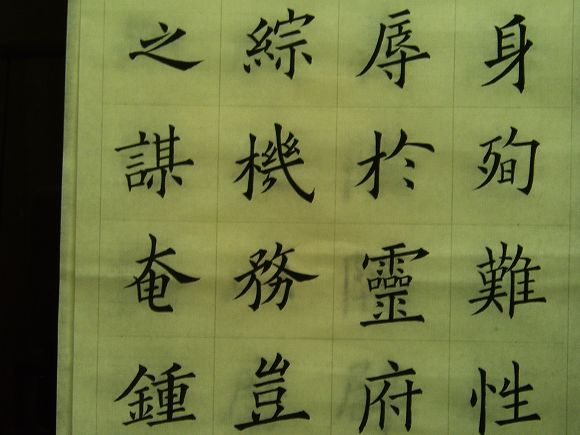 身殉難性
辱於靈府
綜機務豈
之謀奄鍾